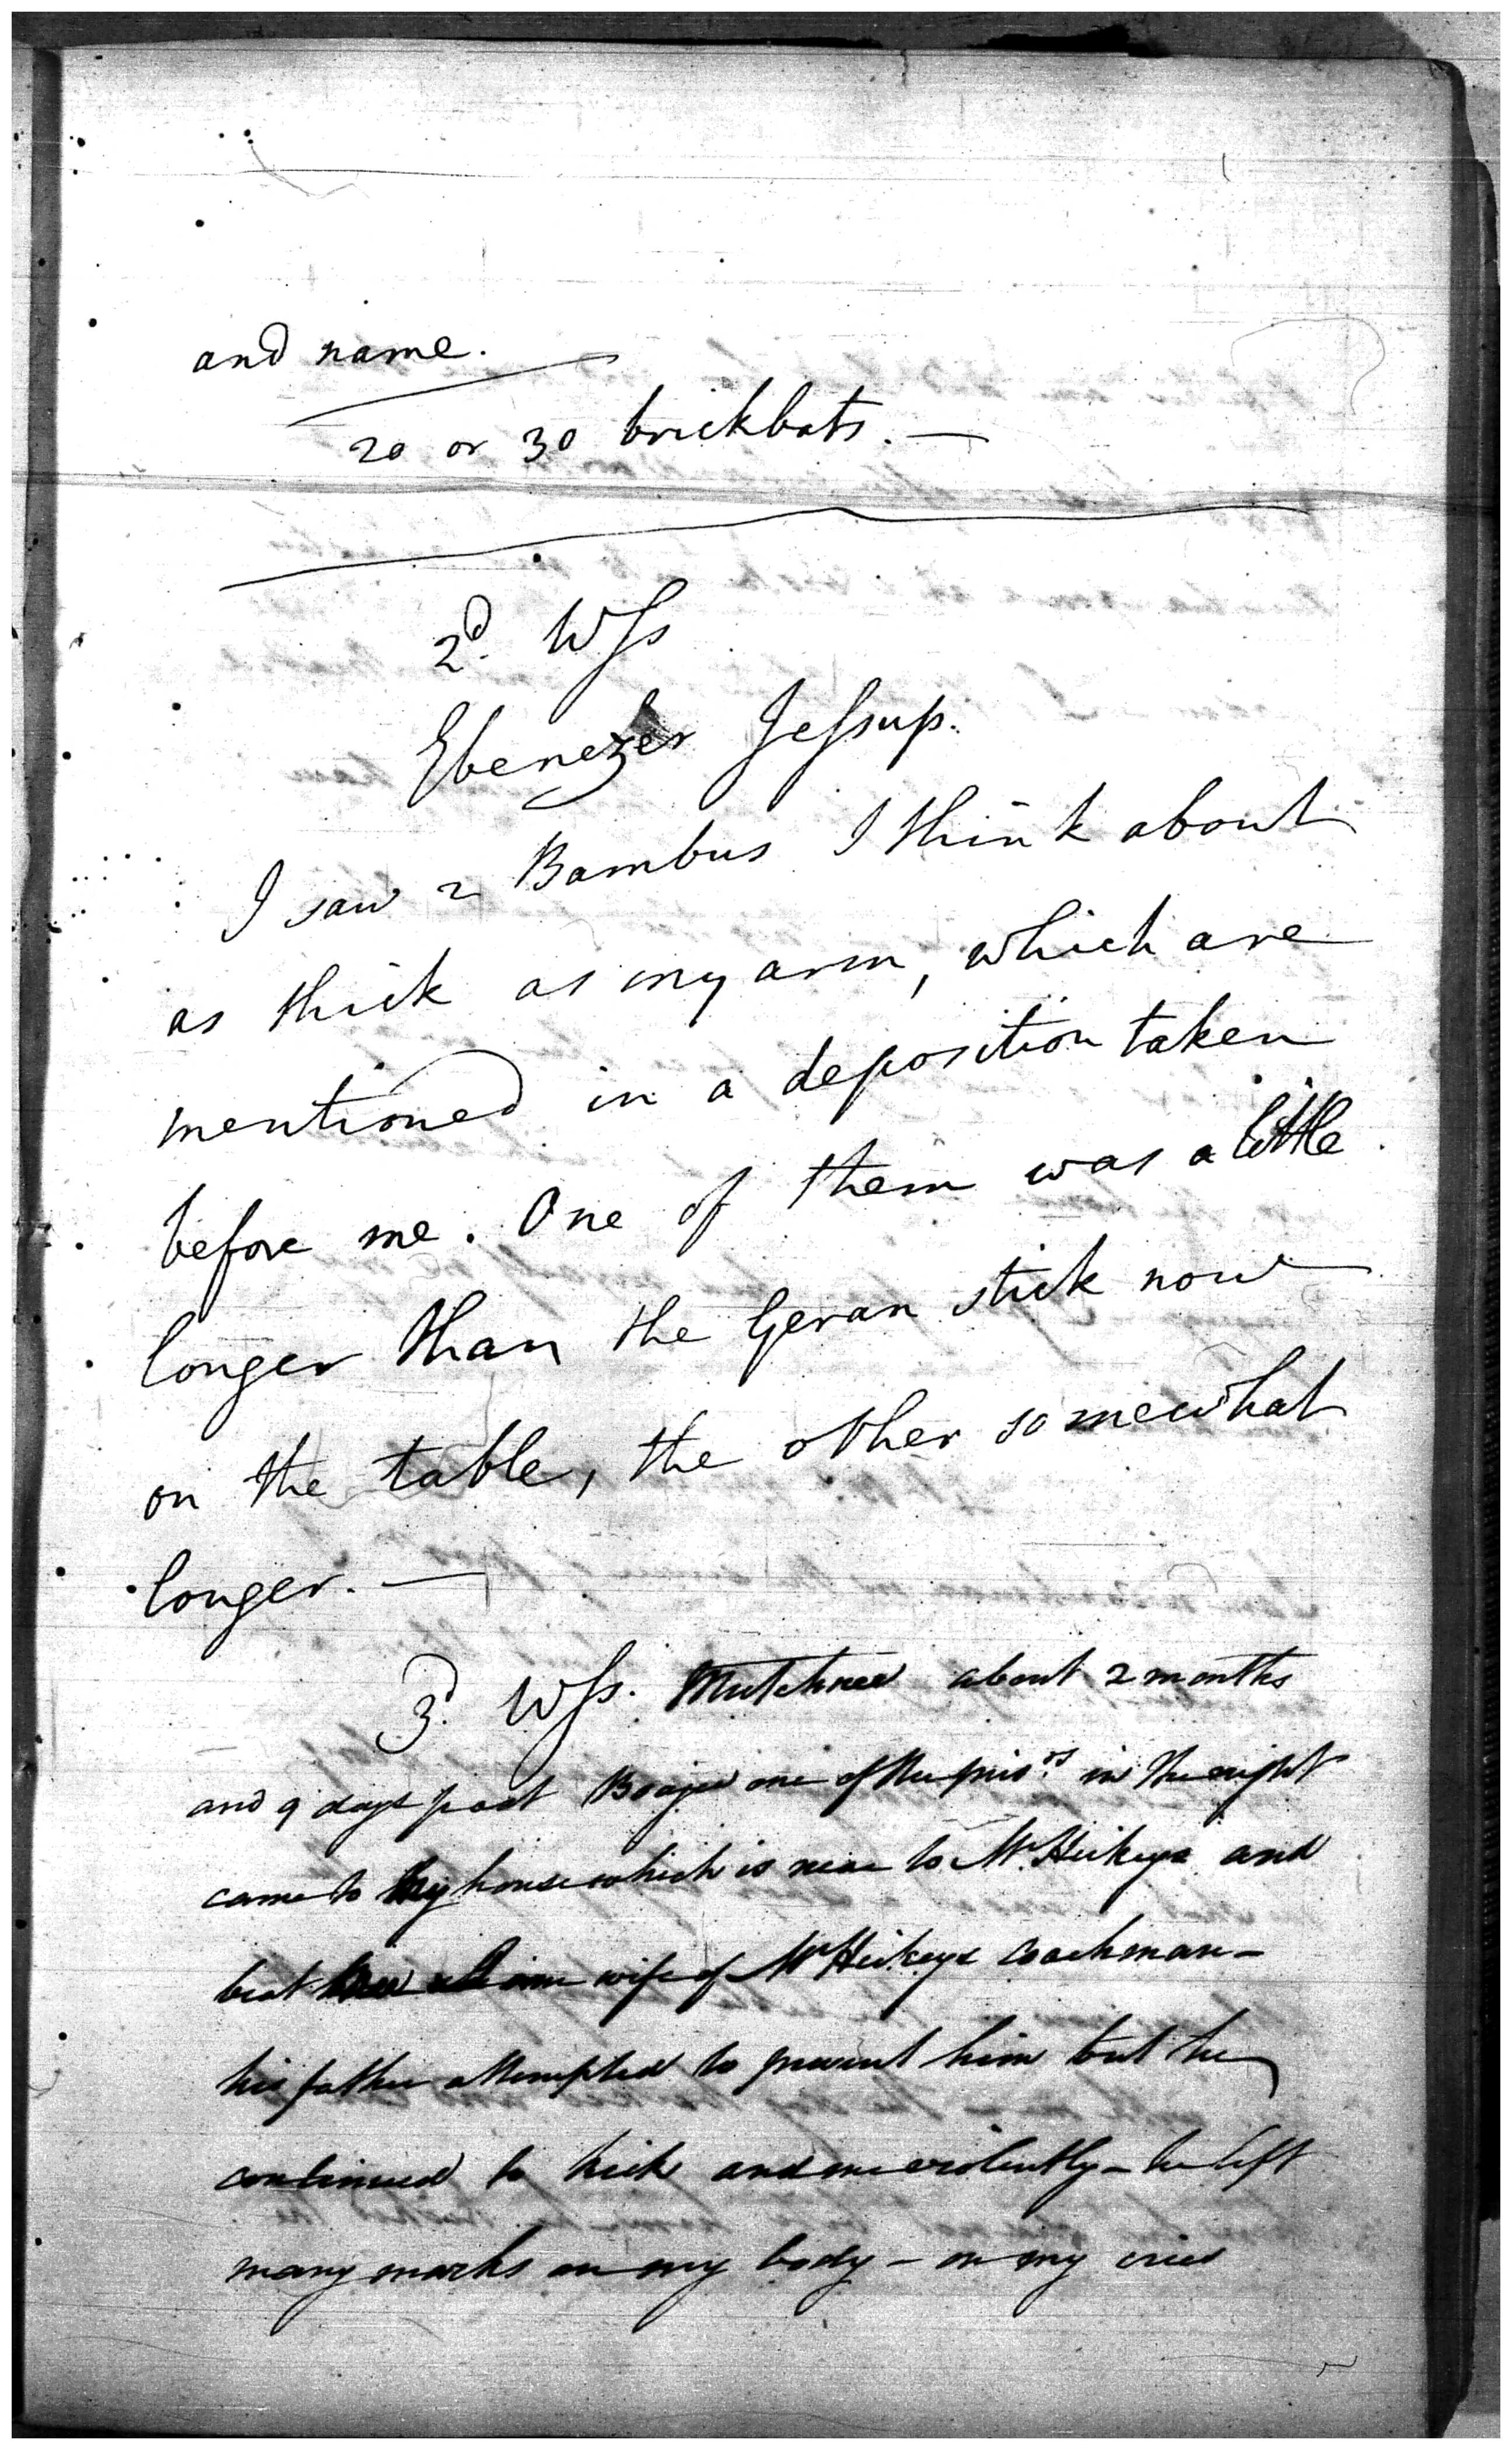 and name.
20 or 30 brickbats. —
2d. Wss
Ebenezer Jessup.
I saw 2 Bambus I think about
as thick as my arm, which are
mentioned in a deposition taken
before me. One of them was a little
longer than the Geran stick now
on the table, the other somewhat
longer. —
3d. Wss. about 2 months
and 9 days past one of the prisrs in the night
came to my house which is near to Mr. Hickeys and
beat wife of Mr Hickeys coachman —
his father attempted to prevent him but he
continued to kick and me violently — he left
many marks on my body — on my cries